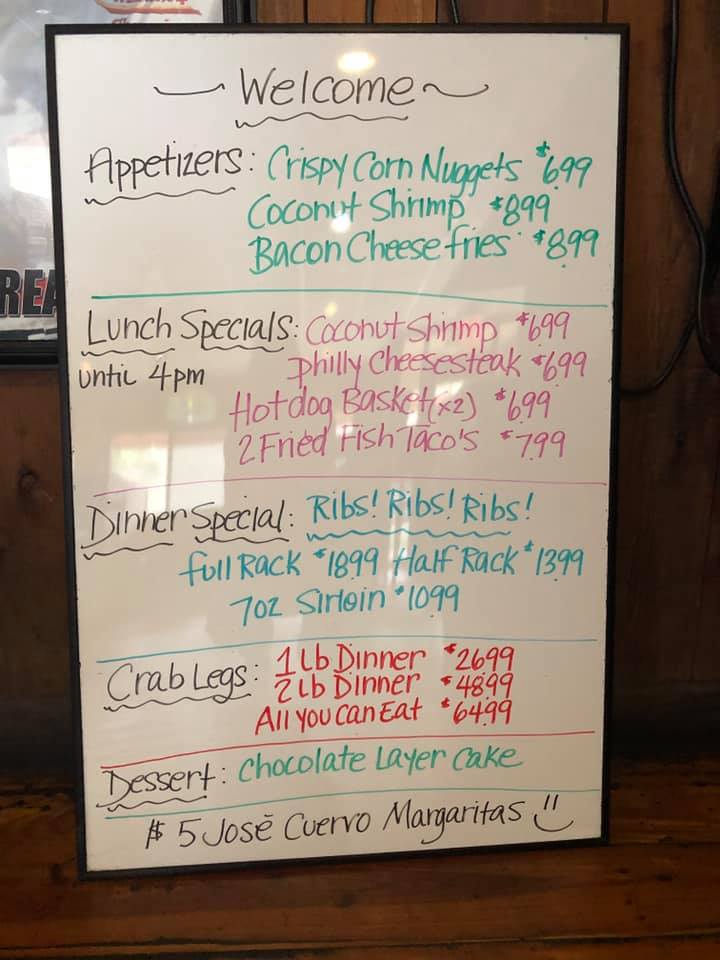 Welcome
Appetizers: Crispy Corn Nuggets $6.99
Coconut Shrimp $8.99
Bacon Cheese fries $8.99
Lunch Specials: Coconut Shrimp $6.99
until 4pm Philly Cheesesteak $6.99
Hotdog Basket (x2) $6.99
2 Fried Fish Taco's $7.99
Dinner Special: Ribs! Ribs! Ribs!
full Rack $18.99 Half Rack $13.99
7oz Sirloin $10.99
Crab Legs: 1 Lb Dinner $26.99
2 lb Dinner $48.99
All you can Eat $64.99
Dessert: Chocolate Layer Cake
$5 José Cuervo Margaritas
REA